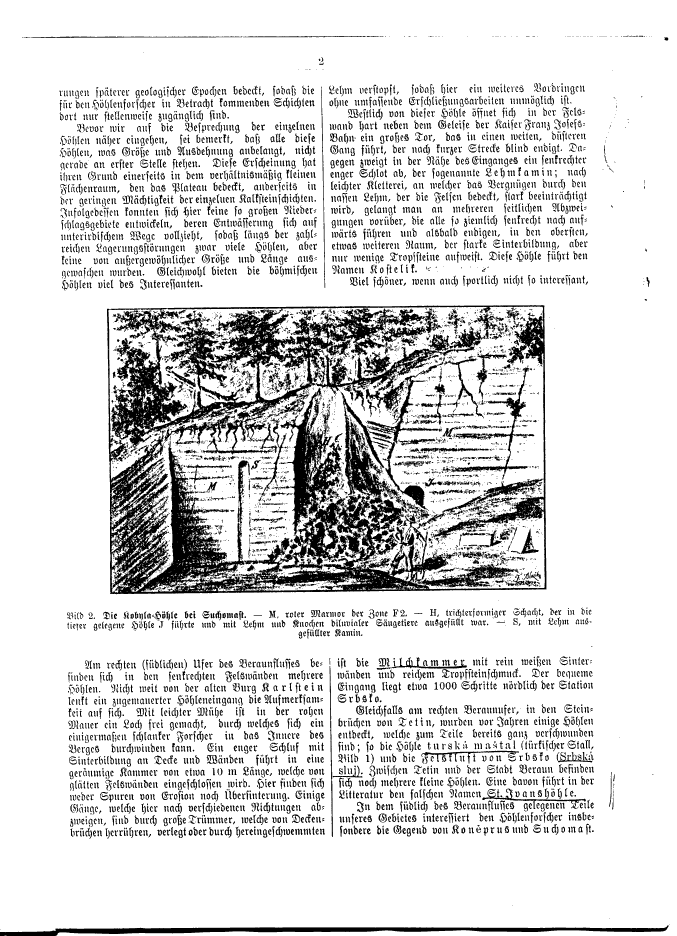 2
rungen späterer geologischer Epochen bedeckt, sodaß die
für den Höhlenforscher in Betracht kommenden Schichten
dort nur stellenweise zugänglich sind.
Bevor wir auf die Besprechung der einzelnen
Höhlen näher eingehen, sei bemerkt, daß alle diese
Höhlen, was Größe und Ausdehnung anbelangt, nicht
gerade an erster Stelle stehen. Diese Erscheinung hat
ihren Grund einerseits in dem verhältnismäßig kleinen
Flächenraum, den das Plateau bedeckt, anderseits in
der geringen Mächtigkeit der einzelnen Kalksteinschichten.
Infolgedessen konnten sich hier keine so großen Nieder-
schlagsgebiete entwickeln, deren Entwässerung sich auf
unterirdischem Wege vollzieht, sodaß längs der zahl-
reichen Lagerungsstörungen zwar viele Höhlen, aber
keine von außergewöhnlicher Größe und Länge aus-
gewaschen wurden. Gleichwohl bieten die böhmischen
Höhlen viel des Interessanten.
Lehm verstopft, sodaß hier ein weiteres Vordringen
ohne umfassende Erschließungsarbeiten unmöglich ist.
Westlich von dieser Höhle öffnet sich in der Fels-
wand hart neben dem Geleise der Kaiser Franz Josefs-
Bahn ein großes Tor, das in einen weiten, düsteren
Gang führt, der nach kurzer Strecke blind endigt. Da-
gegen zweigt in der Nähe des Einganges ein senkrechter
enger Schlot ab, der sogenannte Lehmkamin; nach
leichter Kletterei, an welcher das Vergnügen durch den
nassen Lehm, der die Felsen bedeckt, stark beeinträchtigt
wird, gelangt man an mehreren seitlichen Abzwei-
gungen vorüber, die alle so ziemlich senkrecht nach auf-
wärts führen und alsbald endigen, in den obersten,
etwas weiteren Raum, der starke Sinterbildung, aber
nur wenige Tropfsteine aufweist. Diese Höhle führt den
Namen Kostelik.
Viel schöner, wenn auch sportlich nicht so interessant,
M
S
H
M
J
Bild 2. Die Kobyla-Höhle bei Suchomast. — M, roter Marmor der Zone F 2. — H, trichterförmiger Schacht, der in die
tiefer gelegene Höhle J führte und mit Lehm und Knochen diluvialer Säugetiere ausgefüllt war. — S, mit Lehm aus-
gefüllter Kamin.
Am rechten (südlichen) Ufer des Beraunflusses be-
finden sich in den senkrechten Felswänden mehrere
Höhlen. Nicht weit von der alten Burg Karlstein
lenkt ein zugemauerter Höhleneingang die Aufmerksam-
keit auf sich. Mit leichter Mühe ist in der rohen
Mauer ein Loch frei gemacht, durch welches sich ein
einigermaßen schlanker Forscher in das Innere des
Berges durchwinden kann. Ein enger Schluf mit
Sinterbildung an Decke und Wänden führt in eine
geräumige Kammer von etwa 10 m Länge, welche von
glatten Felswänden eingeschlossen wird. Hier finden sich
weder Spuren von Erosion noch Übersinterung. Einige
Gänge, welche hier nach verschiedenen Richtungen ab-
zweigen, sind durch große Trümmer, welche von Decken-
brüchen herrühren, verlegt oder durch hereingeschwemmten
ist die Milchkammer mit rein weißen Sinter-
wänden und reichem Tropfsteinschmuck. Der bequeme
Eingang liegt etwa 1000 Schritte nördlich der Station
Srbsko.
Gleichfalls am rechten Beraunufer, in den Stein-
brüchen von Tetin, wurden vor Jahren einige Höhlen
entdeckt, welche zum Teile bereits ganz verschwunden
sind; so die Höhle turská maštal (türkischer Stall,
Bild 1) und die Felskluft von Srbsko (Srbská
sluj). Zwischen Tetin und der Stadt Beraun befinden
sich noch mehrere kleine Höhlen. Eine davon führt in der
Literatur den falschen Namen St. Ivanshöhle.
In dem südlich des Beraunflusses gelegenen Teile
unseres Gebietes interessiert den Höhlenforscher insbe-
sondere die Gegend von Koněprus und Suchomast.